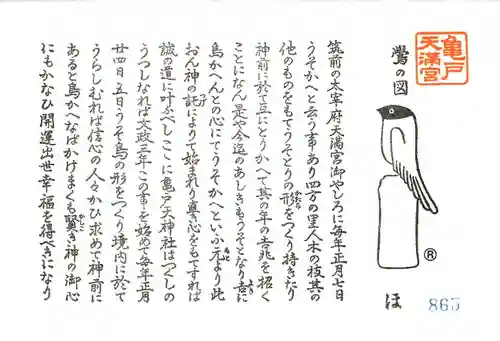 亀戸
天満宮
鷽の図
筑前の太宰府天満宮御やしろに毎年正月七日
うそかへと云う事あり四方の里人木の枝其の
他のものをもてうそとりの形をつくり持きたり
神前に於て互にとりかへて其の年の吉兆を招く
ことになん是や今迄のあしきもうそとなり吉に
鳥かへんとの心にてうそかへといふ元より此
おん神の託によりて始まれり真心をもてすれば
誠の道に叶ふべしここに亀戸天神社はつくしの
うつしなれば文政三年この事を始めて毎年正月
廿四日五日うそ鳥の形をつくり境内に於て
うらしむれば信心の人々かひ求めて神前に
あると鳥かへなばかけまくも賢き神の御心
にもかなひ開運出世幸福を得べきになり
®
ほ
865